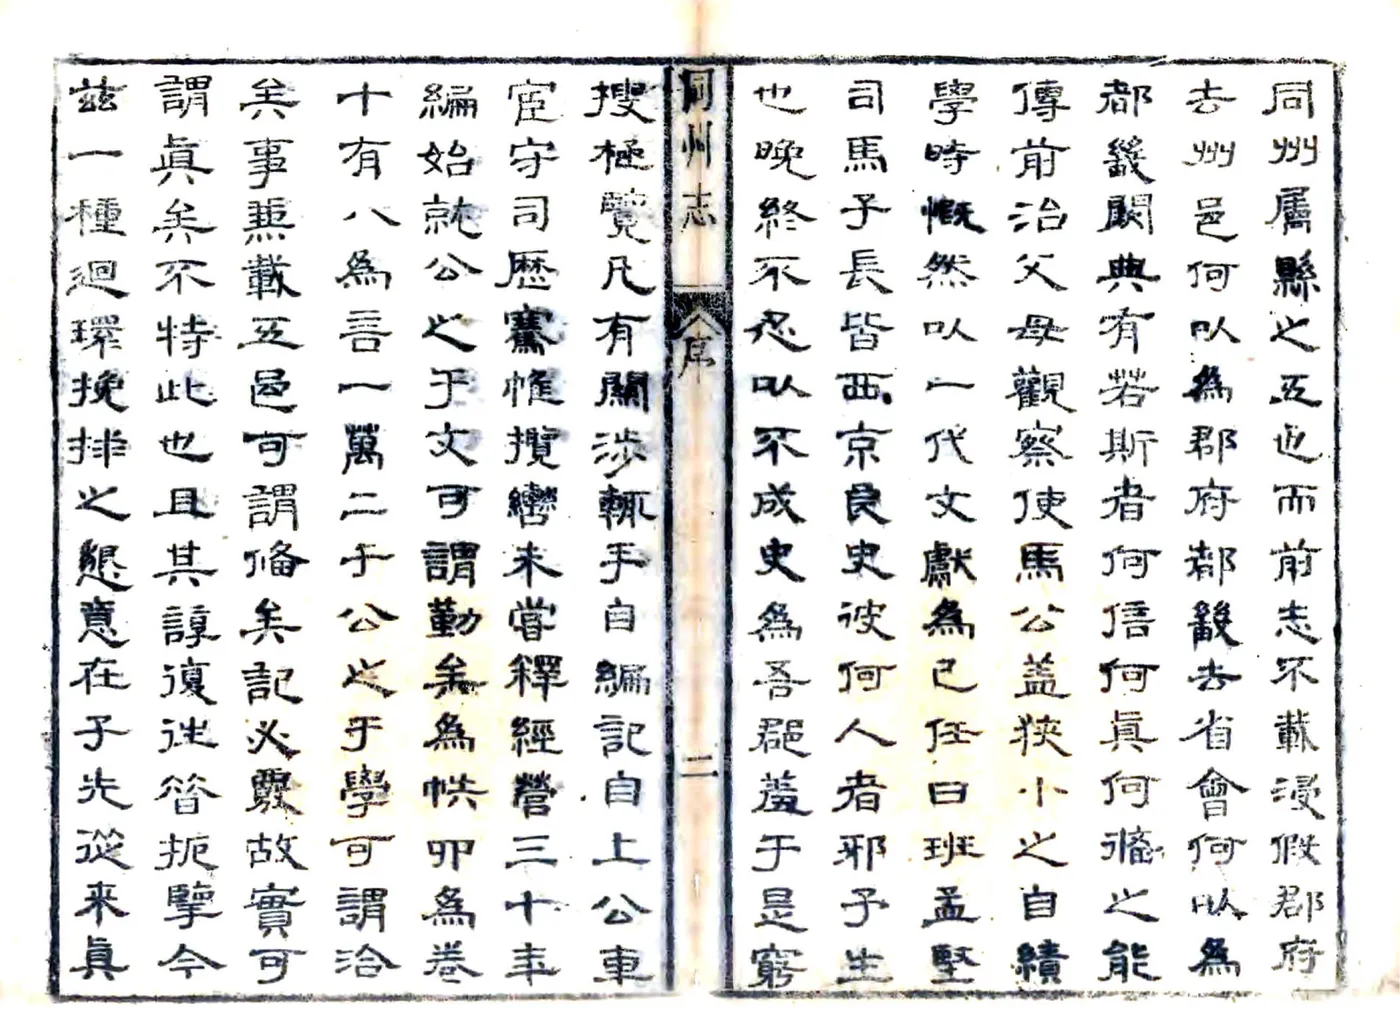 同州屬縣之五也而前志不載浸假郡府
去州邑何以為郡府都畿去省會何以為
都畿闕典有若斯者何信何眞何備之能
傳前治父母觀察使馬公盖狹小之自績
學時慨然以一代文獻為已任曰班孟堅
司馬子長皆西京良史彼何人者邪予生
也晚終不忍以不成史為吾郡羞于是窮
同州志 序 二
搜極覽凡有關涉輒手自編記自上公車
宦守司歷騫帷攬轡未嘗釋經營三十年
編始就公之于文可謂勤矣為帙卯為卷
十有八為言一萬二千公之于學可謂洽
矣事無載五邑可謂偹矣記必覈故實可
謂眞矣不特此也且其諄復徃昝扼擥今
兹一種迴環挽排之懇意在子先從来眞